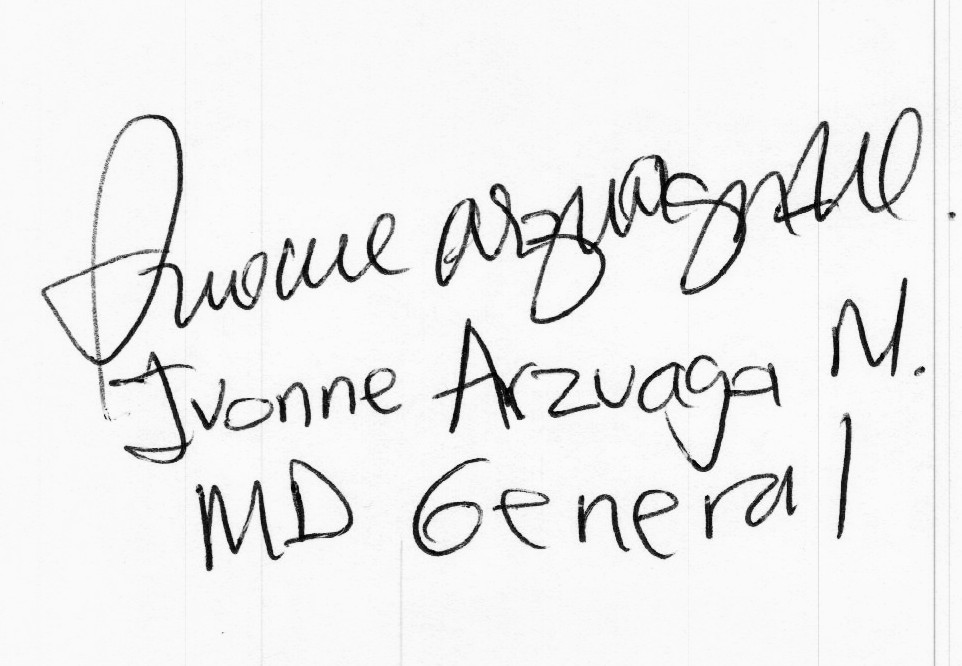 Ivonne Arzuaga M.
Ivonne Arzuaga M.
MD General